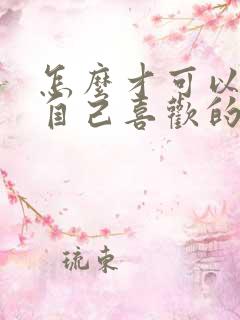 怎麼才可以
自己喜歡的
琉柬